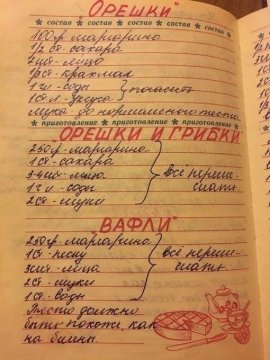 ОРЕШКИ"
состав * состав * состав * состав * состав
100гр. маргарина
1/2 ст. сахара
2шт. яйцо
1/2ст. крахмал
1 ч.л. соды
1ст.л. уксуса
погасить
мука до нормального теста
приготовление * приготовление * приготовление
ОРЕШКИ И ГРИБКИ
250гр. маргарина
1ст. сахара
3-4шт. яйца
1ч л. соды
2ст. муки
все переме-
шать
ВАФЛИ"
250гр. маргарина
1ст. песку
3шт. яйца
2ст. муки
1ст. воды
все переме-
шать
Тесто должно
быть похоже, как
на блины.